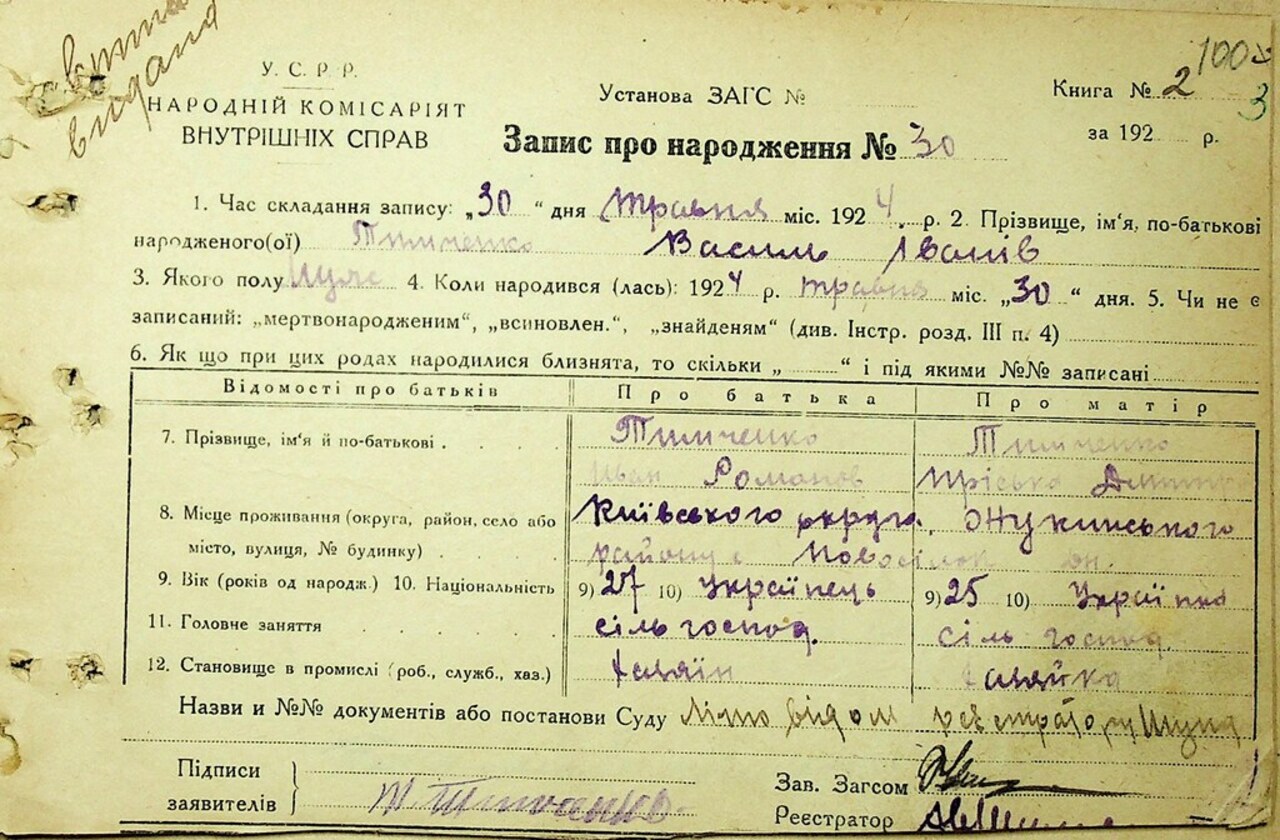 видана
У. С. Р. Р.
НАРОДНІЙ КОМІСАРІЯТ
ВНУТРІШНІХ СПРАВ
Установа ЗАГС №
Книга № 2
100
3
за 192 р.
Запис про народження № 30
1. Час складання запису: „30 “ дня травня міс. 1924 р. 2. Прізвище, ім‘я, по-батькові
народженого(ої) Тимченко Василь Іванів
3. Якого полу муж 4. Коли народився (лась): 1924 р. травня міс. „30 “ дня. 5. Чи не є
записаний: „мертвонародженим“, „всиновлен.“, „знайденям“ (див. Інстр. розд. III п. 4)
6. Як що при цих родах народилися близнята, то скільки „ “ і під якими №№ записані
Відомості про батьків Про батька Про матір
7. Прізвище, ім‘я й по-батькові . Тимченко Тимченко
Иван Романов Пріська
8. Місце проживання (округа, район, село або Київського округа, Жукинського
місто, вулиця, № будинку) . району с Новосілок
9. Вік (років од народж.) 10. Національність 9) 27 10) Українець 9) 25 10) Українка
11. Головне заняття сіль господ. сіль господ.
12. Становище в промислі (роб., служб., хаз.) хазяїн хазяйка
Назви и №№ документів або постанови Суду
Підписи
заявителів
Зав. Загсом
Реєстратор